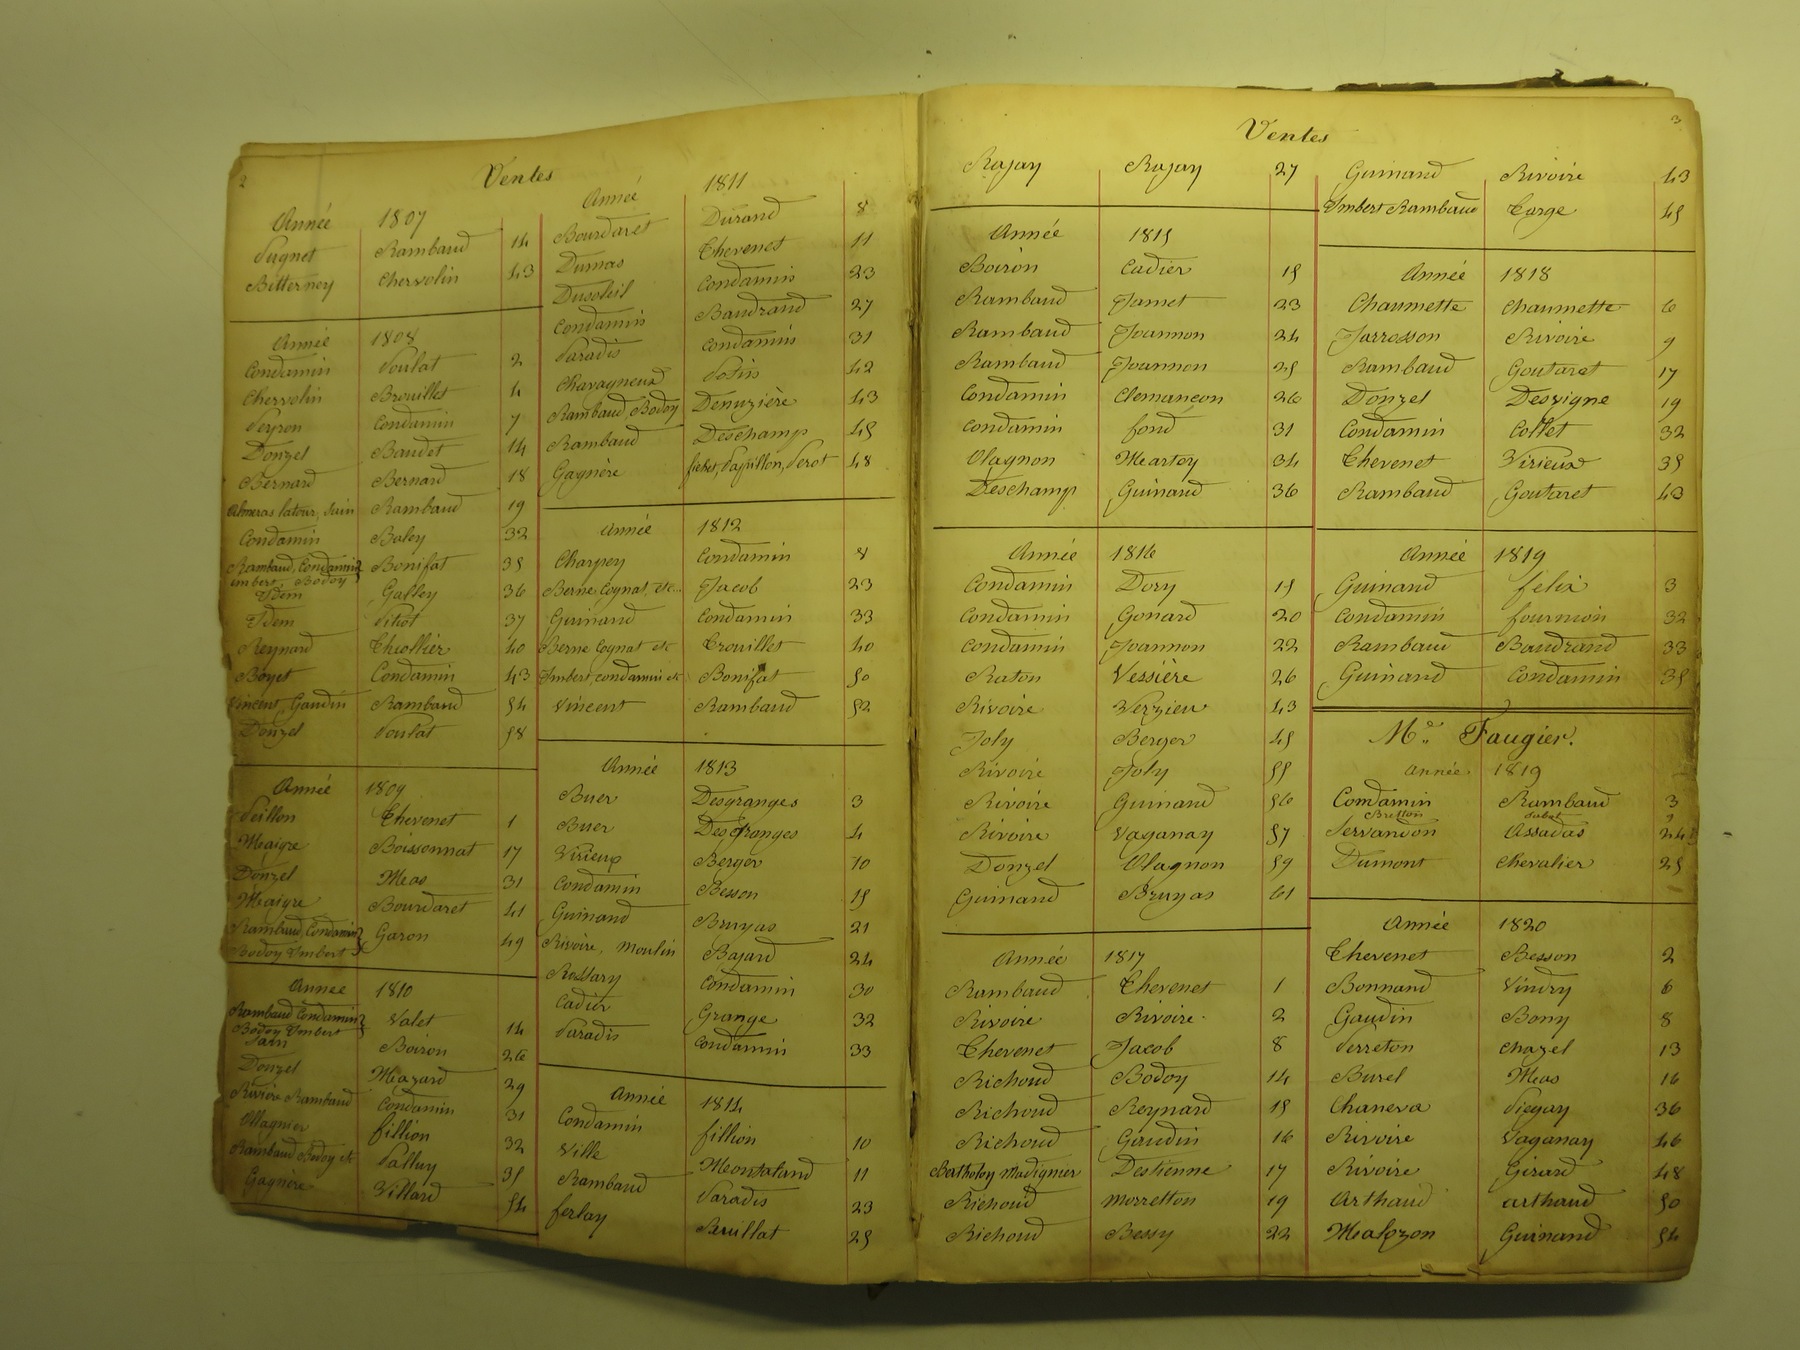 2
Ventes
Année 1807
Pugnet Rambaud 14
Bitterney Chervolin 43
Année 1808
Condamin Poulat 2
Chervolin Brouillet 4
Peyron Condamin 7
Donzel Baudet 14
Bernard Bernard 18
Almeras latour, Jain Rambaud 19
Condamin Baley 32
Rambaud, Condamin Bonifat 35
imbert, Bodoy
Idem Galley 36
Idem Pitiot 37
Reynard Thiollier 40
Boyet Condamin 43
Vincent, Gaudin Rambaud 54
Donzel Poulat 58
Année 1809
Peillon Thevenet 1
Maigre Boissonnat 17
Donzel Meas 31
Maigre Bourdaret 41
Rambaud, Condamin Garon 49
Bodoy Imbert
Année 1810
Rambaud Condamin Valet 14
Bodoy Imbert
Jain Boiron 26
Donzel Mazard 29
Rivière Rambaud Condamin 31
Ollagnier fillion 32
Rambaud Bodoy etc Palluy 35
Gagnère Villard 54
Année 1811
Bourdaret Durand 8
Dumas Thevenet 11
Dusoleil Condamin 23
Condamin Baudrand 27
Paradis Condamin 31
Chavagneux Potin 42
Rambaud, Bodoy Denuzière 43
Rambaud Deschamp 45
Gagnère fichet, Papillon, Perot 48
Année 1812
Charpey Condamin 8
Berne Cognat, etc.. Jacob 23
Guinand Condamin 33
Berne Cognat etc Trouillet 40
Imbert, condamin etc Bonifat 50
Vincent Rambaud 52
Année 1813
Buer Desgranges 3
Buer Desgranges 4
Virieux Berger 10
Condamin Besson 15
Guinand Bruyas 21
Rivoire, Moulin Bajard 24
Rossary Condamin 30
Cadier Grange 32
Paradis Condamin 33
Année 1814
Condamin fillion 10
Ville Montaland 11
Rambaud Paradis 23
ferlay Pauillat 25
3
Ventes
Rajay Rajay 27
Année 1815
Boiron Cadier 15
Rambaud Jamet 23
Rambaud Joannon 24
Rambaud Joannon 25
Condamin Clemançon 26
Condamin fond 31
Olagnon Martoy 34
Deschamp Guinand 36
Année 1816
Condamin Dory 15
Condamin Gonard 20
Condamin Joannon 22
Raton Vessière 26
Rivoire Verzieu 43
Joly Berger 45
Rivoire Joly 55
Rivoire Guinand 56
Rivoire Vaganay 57
Donzel Olagnon 59
Guinand Bruyas 61
Année 1817
Rambaud Thevenet 1
Rivoire Rivoire 2
Thevenet Jacob 8
Richoud Bodoy 14
Richoud Reynard 15
Richoud Gaudin 16
Bertholoy Madignier Destienne 17
Richoud Morretton 19
Richoud Bessy 22
Guinand Rivoire 43
Imbert Rambaud Targe 45
Année 1818
Chaumette Chaumette 6
Jarrosson Rivoire 9
Rambaud Goutaret 17
Donzel Desvigne 19
Condamin Collet 32
Thevenet Virieux 35
Rambaud Goutaret 43
Année 1819
Guinand felix 3
Condamin fournion 32
Rambaud Baudrand 33
Guinand Condamin 35
Me Faugier.
Année 1819
Condamin Rambaud 3
Bretton
Servandon Assadas 24
Dumont Chevalier 25
Année 1820
Thevenet Besson 2
Bonnand Vindry 6
Gaudin Bony 8
Perreton Chazel 13
Burel Meas 16
Chaneva Piegay 36
Rivoire Vaganay 46
Rivoire Girard 48
Arthaud Arthaud 50
Malozon Guinand 54